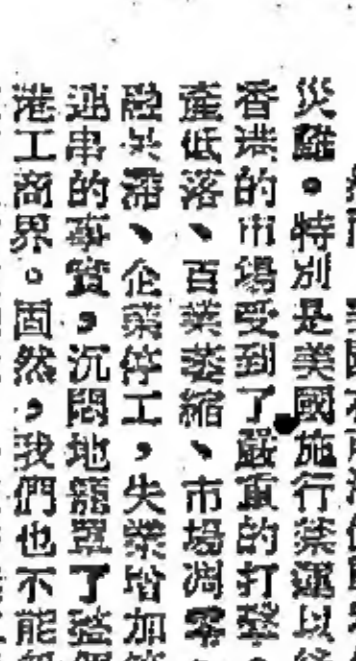 災難。特別是美國施行禁運以
香港的市場受到了嚴重的打擊
產低落、百業萎縮、市場凋零
融呆滯、企業停工，失業增加
連串的事實，沉悶地籠罩了整
港工商界。固然，我們也不能